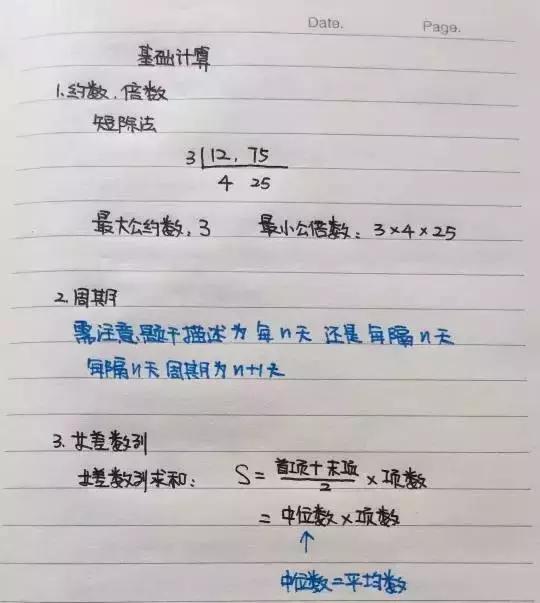 Date.    Page.
基础计算
1.约数、倍数
短除法
3|12, 75
4  25
最大公约数:3    最小公倍数:3×4×25
2.周期
需注意题干描述为每n天 还是每隔n天
每隔n天周期为n+1天
3.等差数列
等差数列求和: S=首项+末项/2×项数
=中位数×项数
↑
中位数=平均数